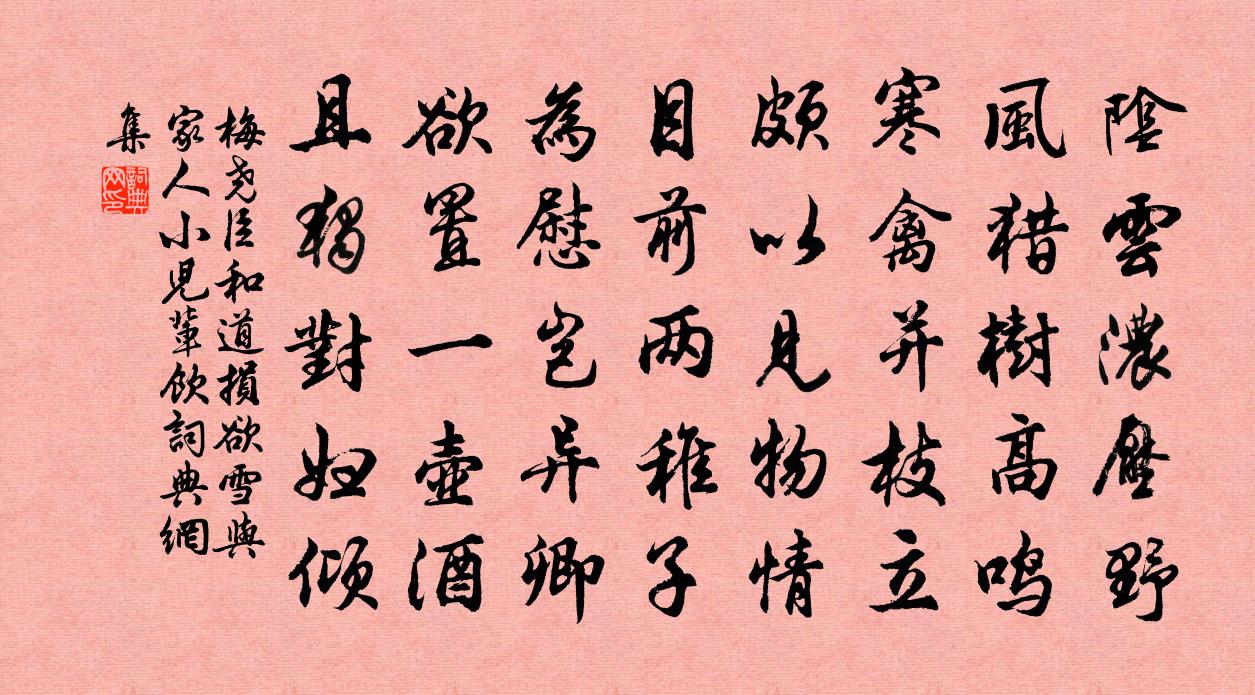 陰雲濃壓野
風猎樹高鸣
寒禽并枝立
頗以見物情
目前两稚子
為慰岂异卿
欲置一壺酒
且獨對妇傾
梅尧臣和道損欲雪與
家人小児輩飲詞典網
集
詞典
网印